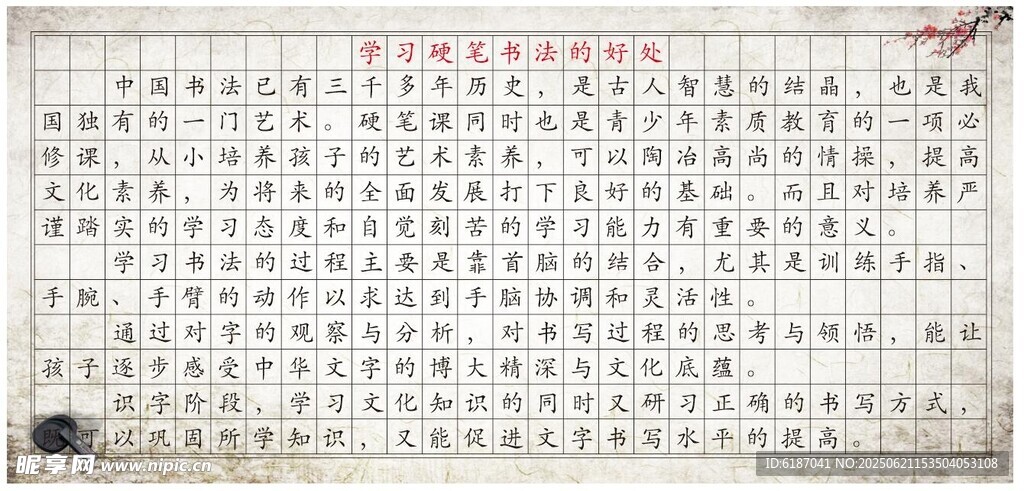 学习硬笔书法的好处
中国书法已有三千多年历史，是古人智慧的结晶，也是我
国独有的一门艺术。硬笔课同时也是青少年素质教育的一项必
修课，从小培养孩子的艺术素养，可以陶冶高尚的情操，提高
文化素养，为将来的全面发展打下良好的基础。而且对培养严
谨踏实的学习态度和自觉刻苦的学习能力有重要的意义。
学习书法的过程主要是靠首脑的结合，尤其是训练手指、
手腕、手臂的动作以求达到手脑协调和灵活性。
通过对字的观察与分析，对书写过程的思考与领悟，能让
孩子逐步感受中华文字的博大精深与文化底蕴。
识字阶段，学习文化知识的同时又研习正确的书写方式，
既可以巩固所学知识，又能促进文字书写水平的提高。
昵享网 www.nipic.cn
ID:6187041 NO:20250621153504053108